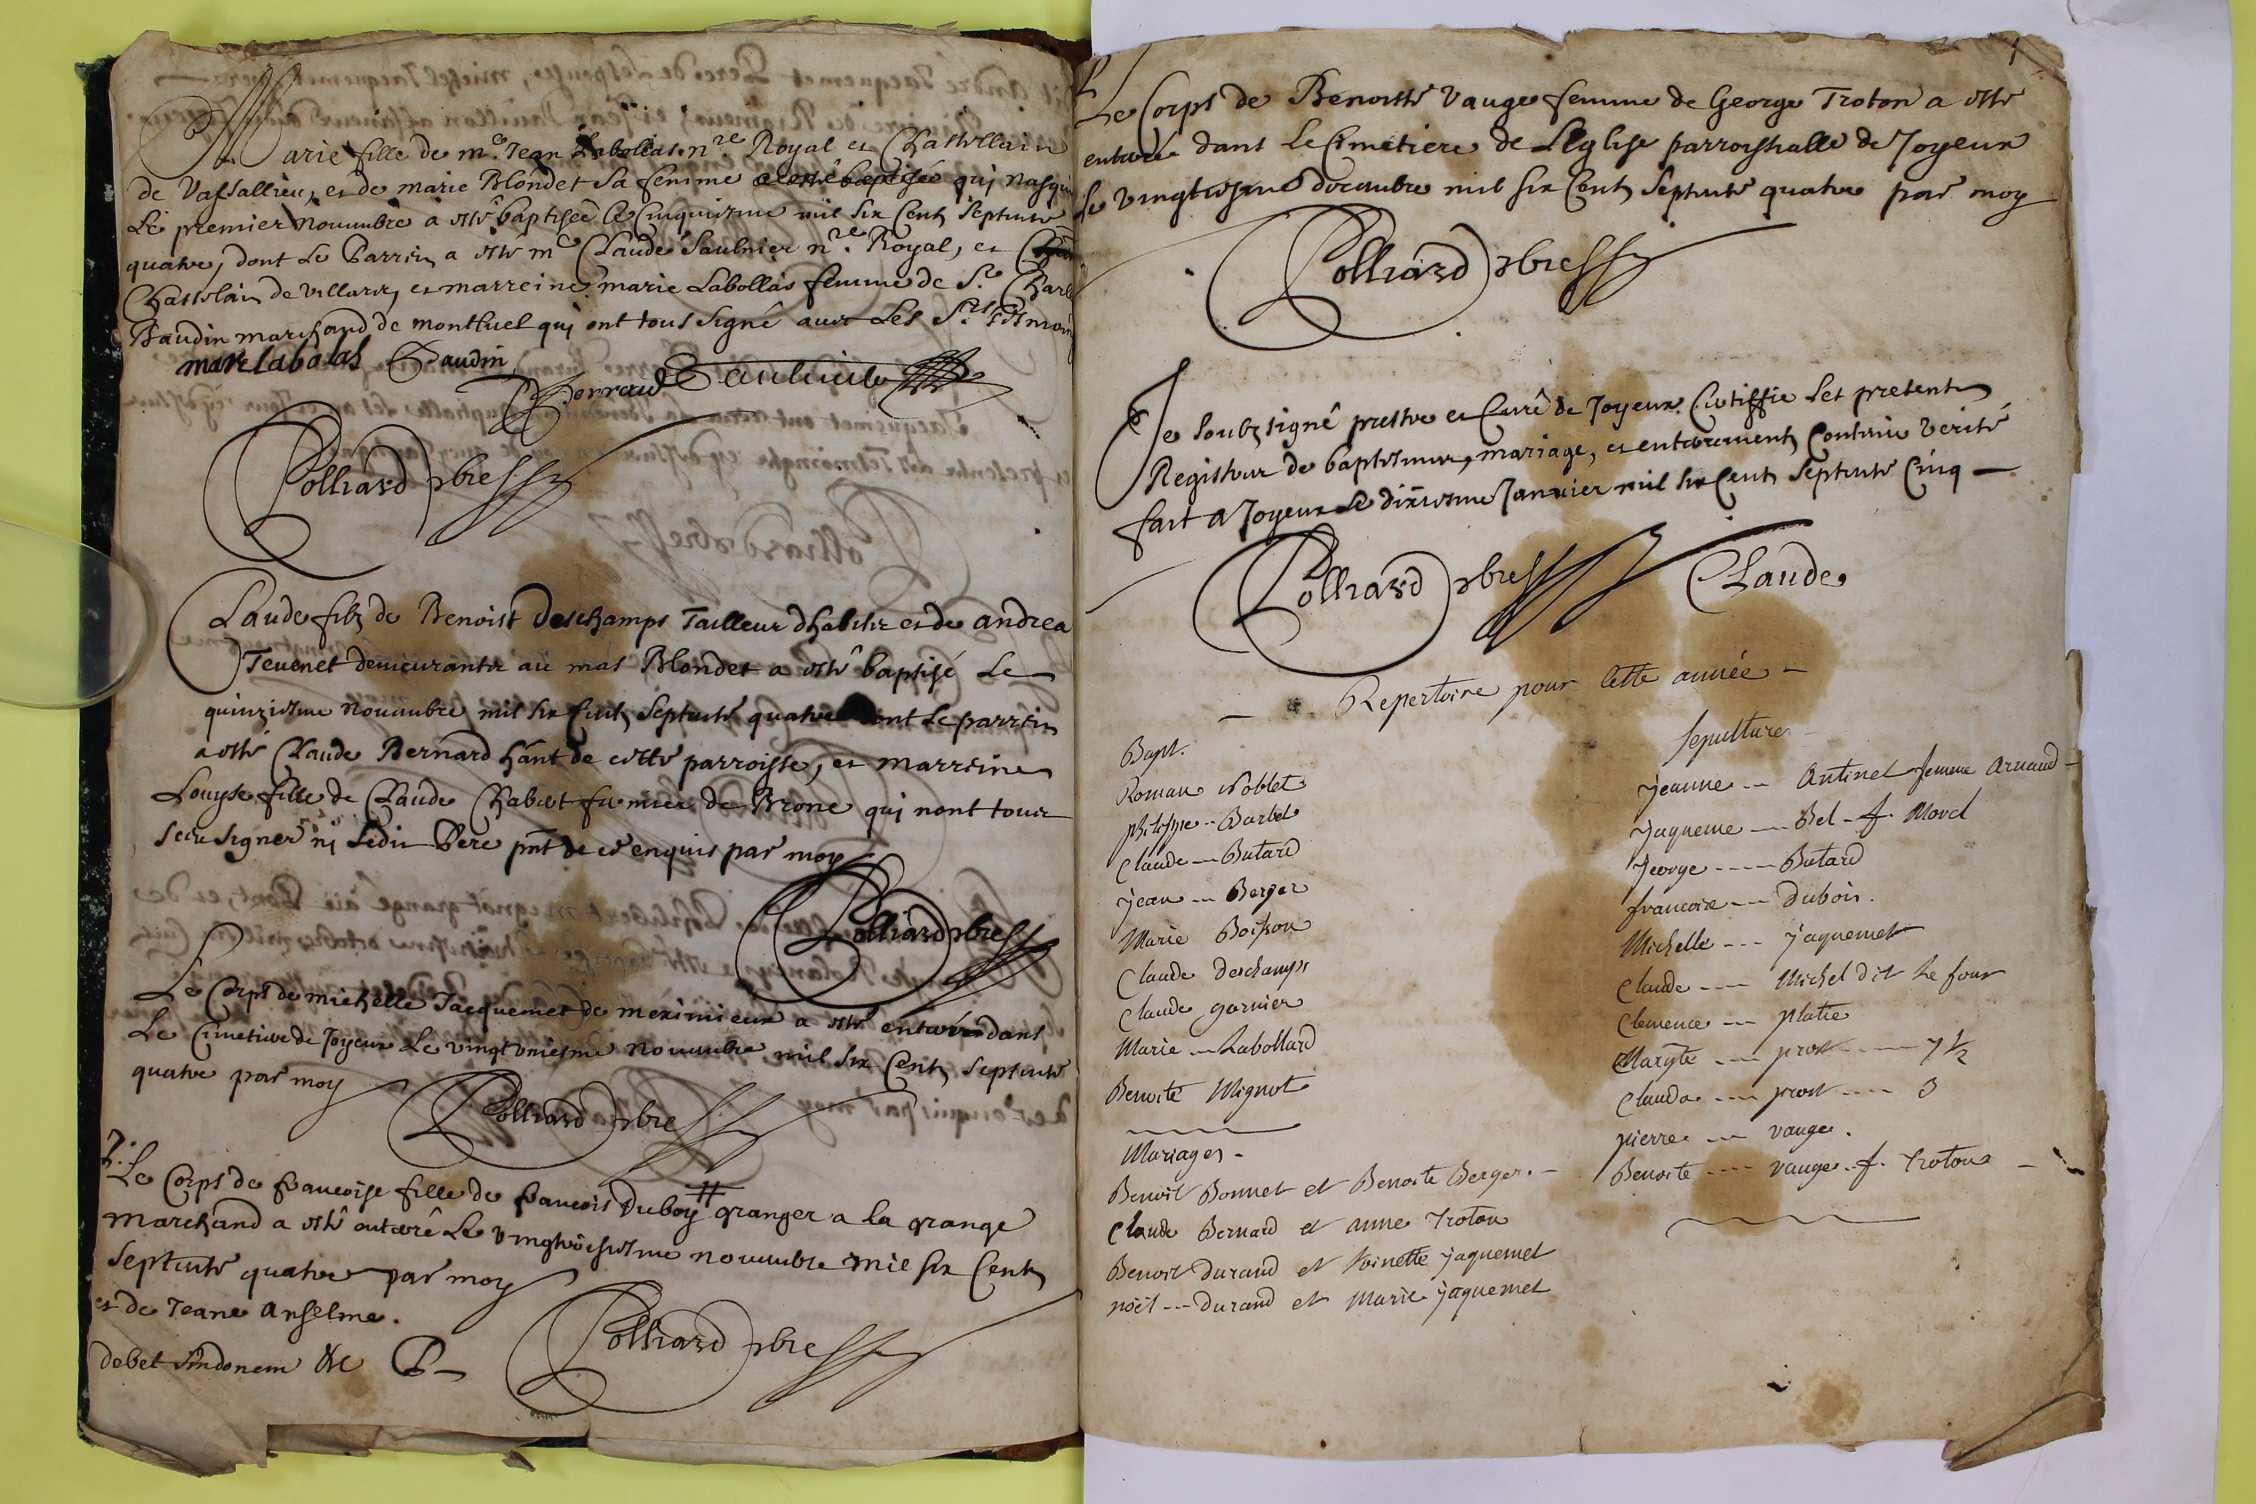 Marie fille de me Jean Labollas nre Royal et Chastellain
de Vassallieu, et de marie Blondet sa femme qui nasquit
Le premier novembre a esté baptisée Le Cinquiesme mil six Cents septente
quatre, dont Le Parrin a esté me Claude Saulnier nre Royal, et
Chastelain de villars, et marreine marie Labollas femme de Sr Charle
Baudin marchand de montluel qui ont tous signé avec Les
marie labolas Baudin
Perraud Saulnier
Polliard pbre
Claude filz de Benoist Deschamps Tailleur dhabits et de andrea
Tevenet demeurants au mas Blondet a esté baptisé Le
quinziesme novembre mil six Cents septente quatre dont Le parrin
a esté Claude Bernard hãnt de cette parroisse, et marreine
Louyse fille de Claude Chabet fermier de Brone qui nont
sceu signer ny Ledit Pere pnt de ce enquis par moy
Polliard pbre
Le Corps de michelle Jacquemet de meximieux a esté enterré dans
Le Cimetiere de Joyeux Le vingt uniesme novembre mil six Cents septente
quatre par moy
Polliard pbre
Le Corps de francoise fille de francois Duboy # granger a la grange
marchand a esté enterré Le vingtroisiesme novembre mil six Cents
septente quatre par moy
et de Jeane Anselme.
debet sindonem &c P
Polliard pbre
Le Corps de Benoiste Vauge femme de George Troton a esté
enterrée dans Le Cimetiere de LEglise parroissialle de Joyeux
Le decembre mil six Cents septente quatre par moy
Polliard pbre
Je soubsigné prestre et Curé de Joyeux Certiffie Les presents
Registeur de baptesmes, mariage, et enterrements Contenir verité
fait a Joyeux Le dixiesme Janvier mil six Cents septente Cinq
Polliard pbre Claude
Repertoire pour Cette année
Bapt.
Roman Noblet
philippe -- Barbet
Claude -- Butard
Jean -- Berger
Marie Boisson
Claude deschamps
Claude garnier
Marie -- Labollard
Benoite Mignot
Mariages
Benoit Bonnet et Benoite Berger.
Claude Bernard et anne Troton
Benoit durand et toinette jaquemet
noël --- durand et Marie jaquemet
sepulture
jeanne -- Antinel femme Arnaud
jaqueme --- Bel - f. Morel
jeorge ---- Butard
francoise --- dubois.
Michelle --- jaquemet
Claude ---- Michel dit Le four
Clemence --- platte
Margte --- prost ---- 7 1/2
Clauda ---- prost ---- 3
pierre --- vauge.
Benoite ---- vauge. f. Troton